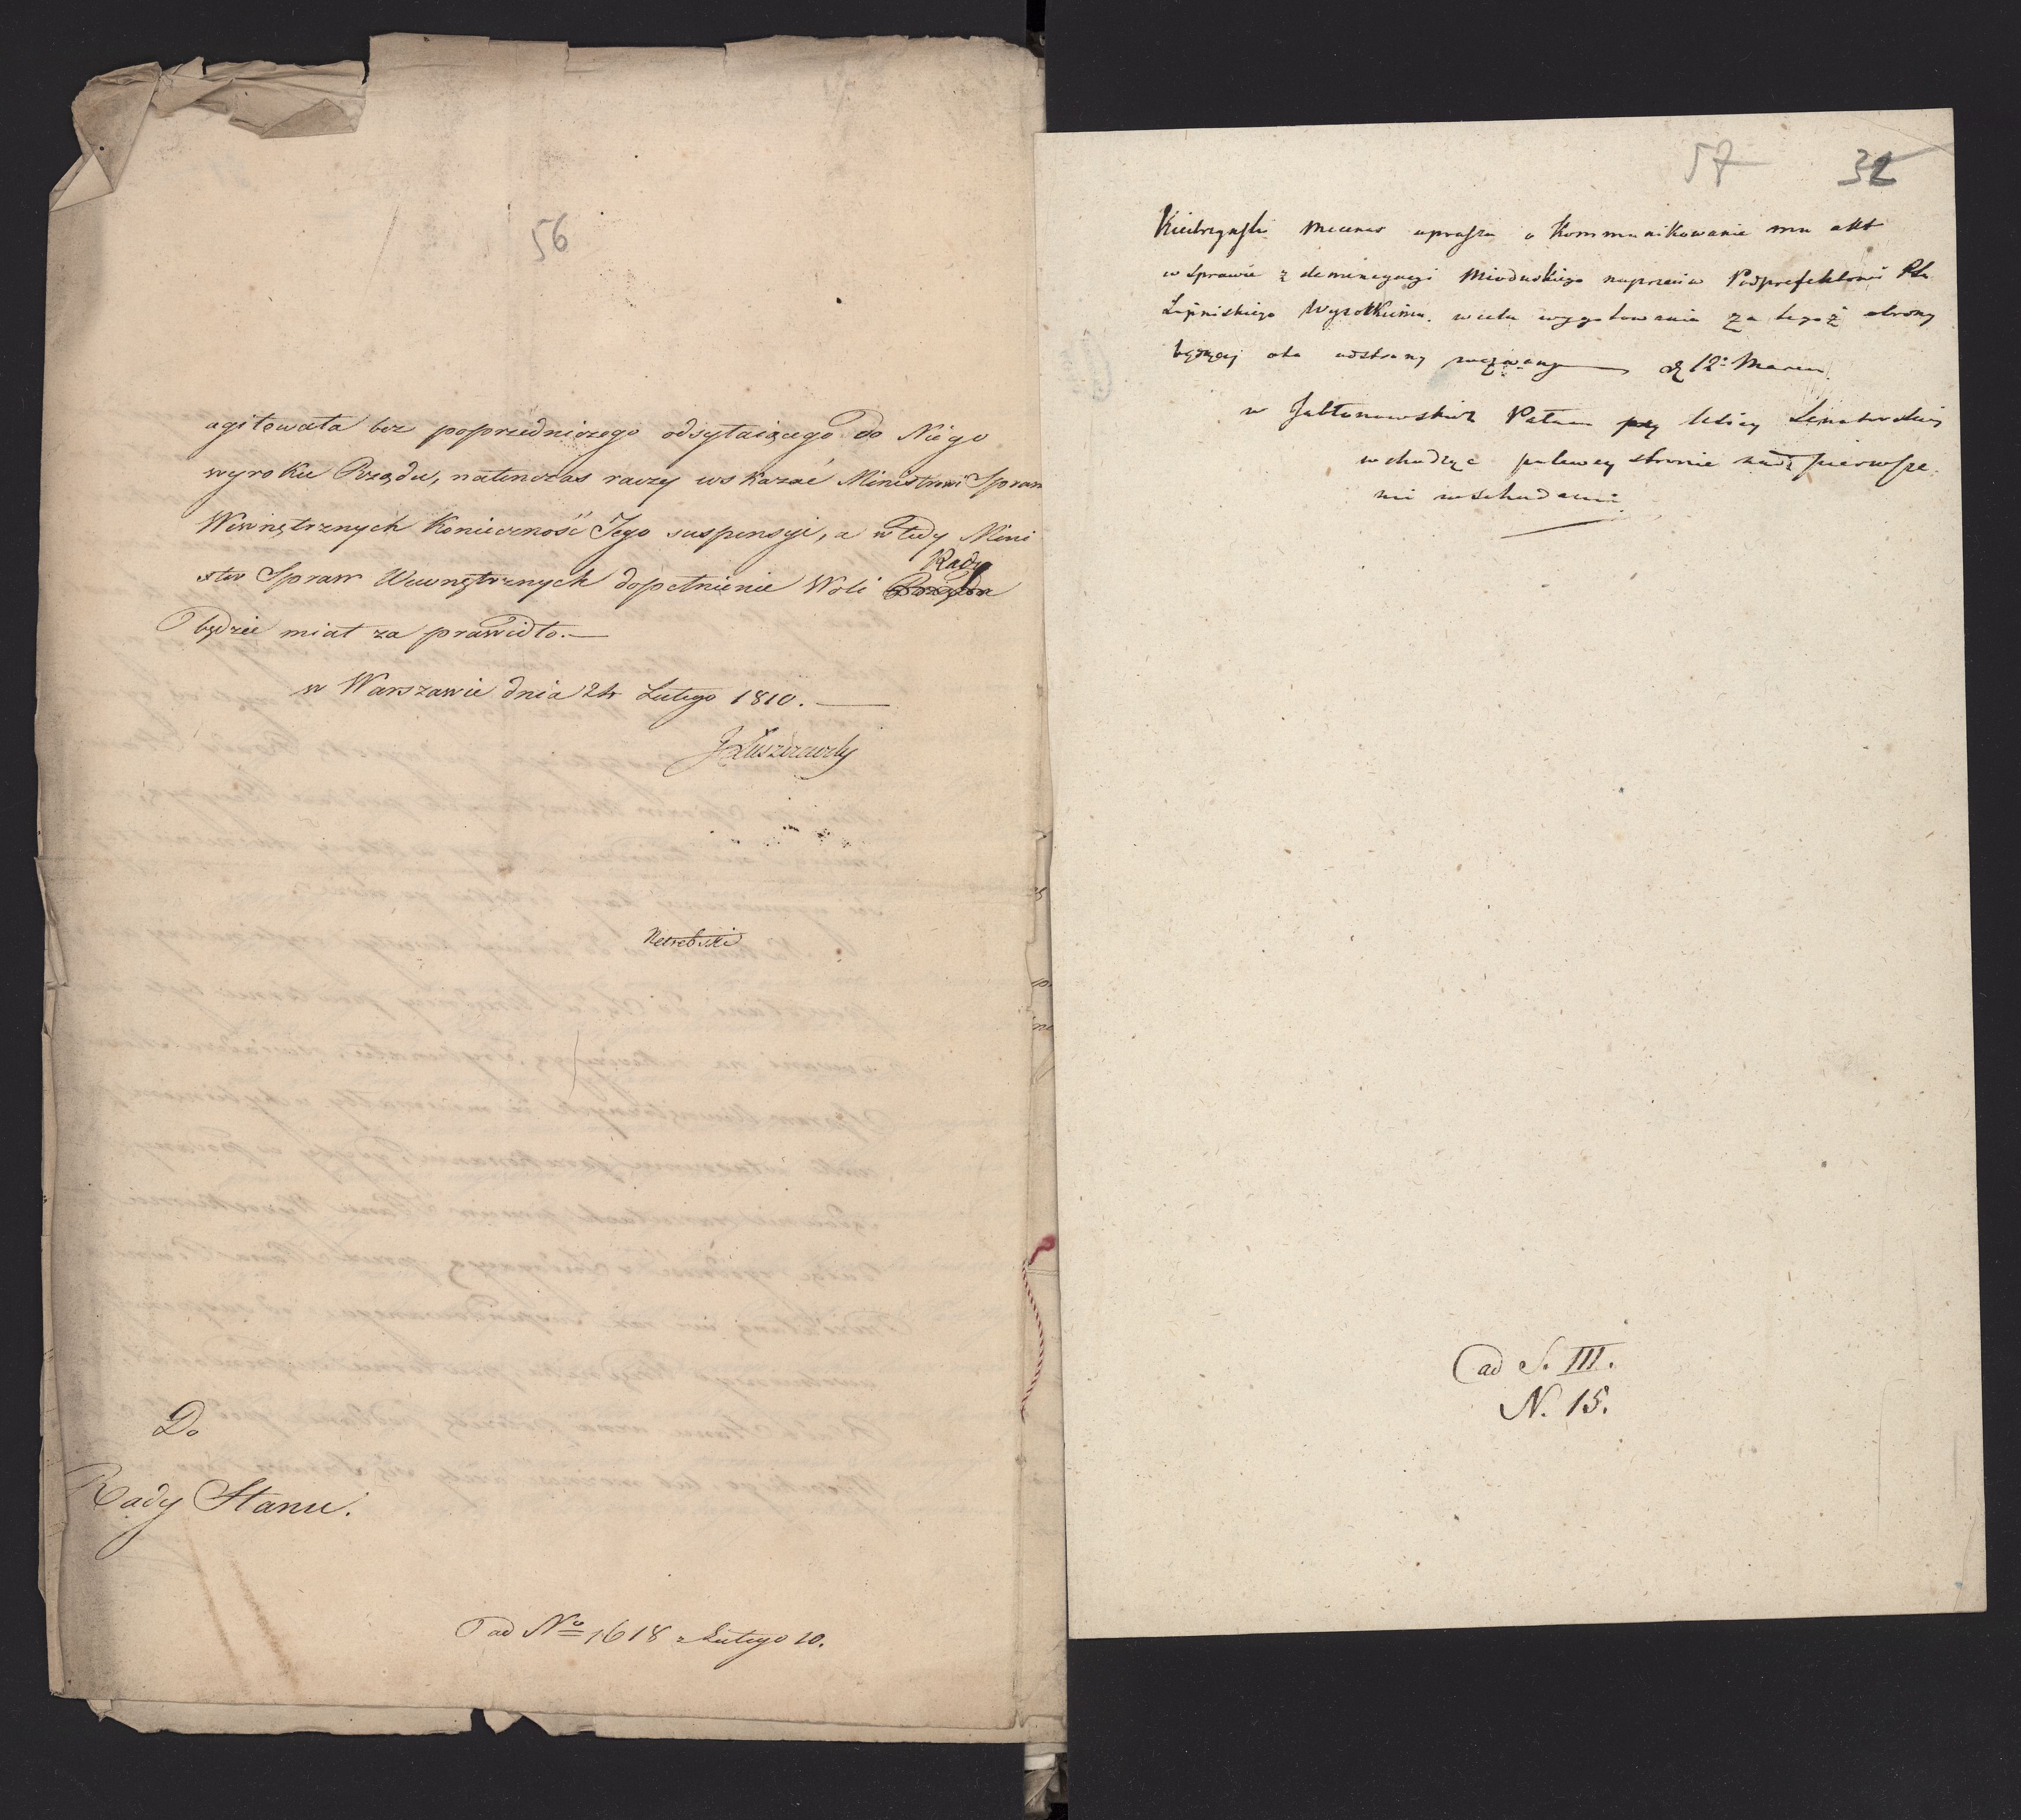 56
agitowała bez poprzedniczego odsyłaiącego do Niego
wyroku Rządu, natenczas raczy wskazać Ministrowi Spraw
Wewnętrznych Konieczność Jego suspensyi, a wtedy Mini
Rady
ster Spraw Wewnętrznych dopełnienie Woli Rządu
będzie miał za prawidło.—
w Warszawie dnia 24 Lutego 1810. —
JŁuszczewsky
Netrebski
Do
Rady Stanu.
ad No 1618 z Lutego 10.
57 32
Mecenas uprasza o Kommunikowanie mu akt
w sprawie z denuncyacyi Mioduskiego naprzeciw Podprefektowi Ptu
Lipniskiego Wysotkiemu. w celu wygotowania za tegoż obrony
będącej od 12 Marca
w Jabłonowskich Pałacu przy Ulicy Senatorskiey
wchodząc po lewey stronie nad pierwsze
mi wschodami.
ad S. III.
N. 15.